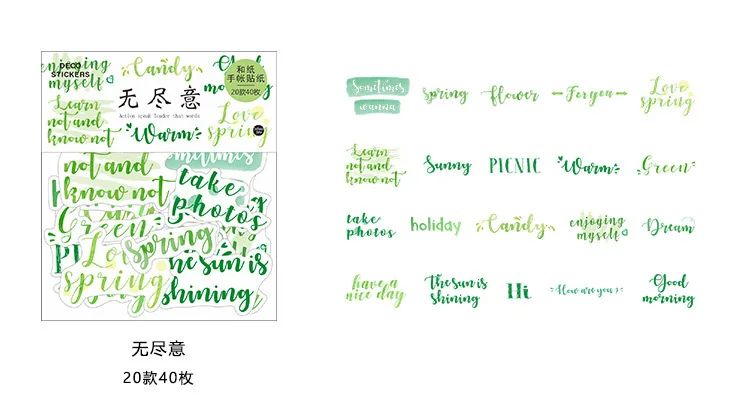 DECO
STICKERS
enjoying
myself
Candy
Good
和纸
手帐贴纸
20款40枚
无尽意
Action speak louder than words
Learn
not and
know not
Warm
Love
spring
not and
know not
sometimes
take
photos
Green
Lo
spring
spring
the sun is
shining
无尽意
20款40枚
Sometimes
wanna
spring
flower
Foryou
Love
spring
Learn
not and
know not
Sunny
PICNIC
Warm
Green
take
photos
holiday
Candy
enjoying
myself
Dream
have a
nice day
The sun is
shining
Hi
How are you?
Good
morning